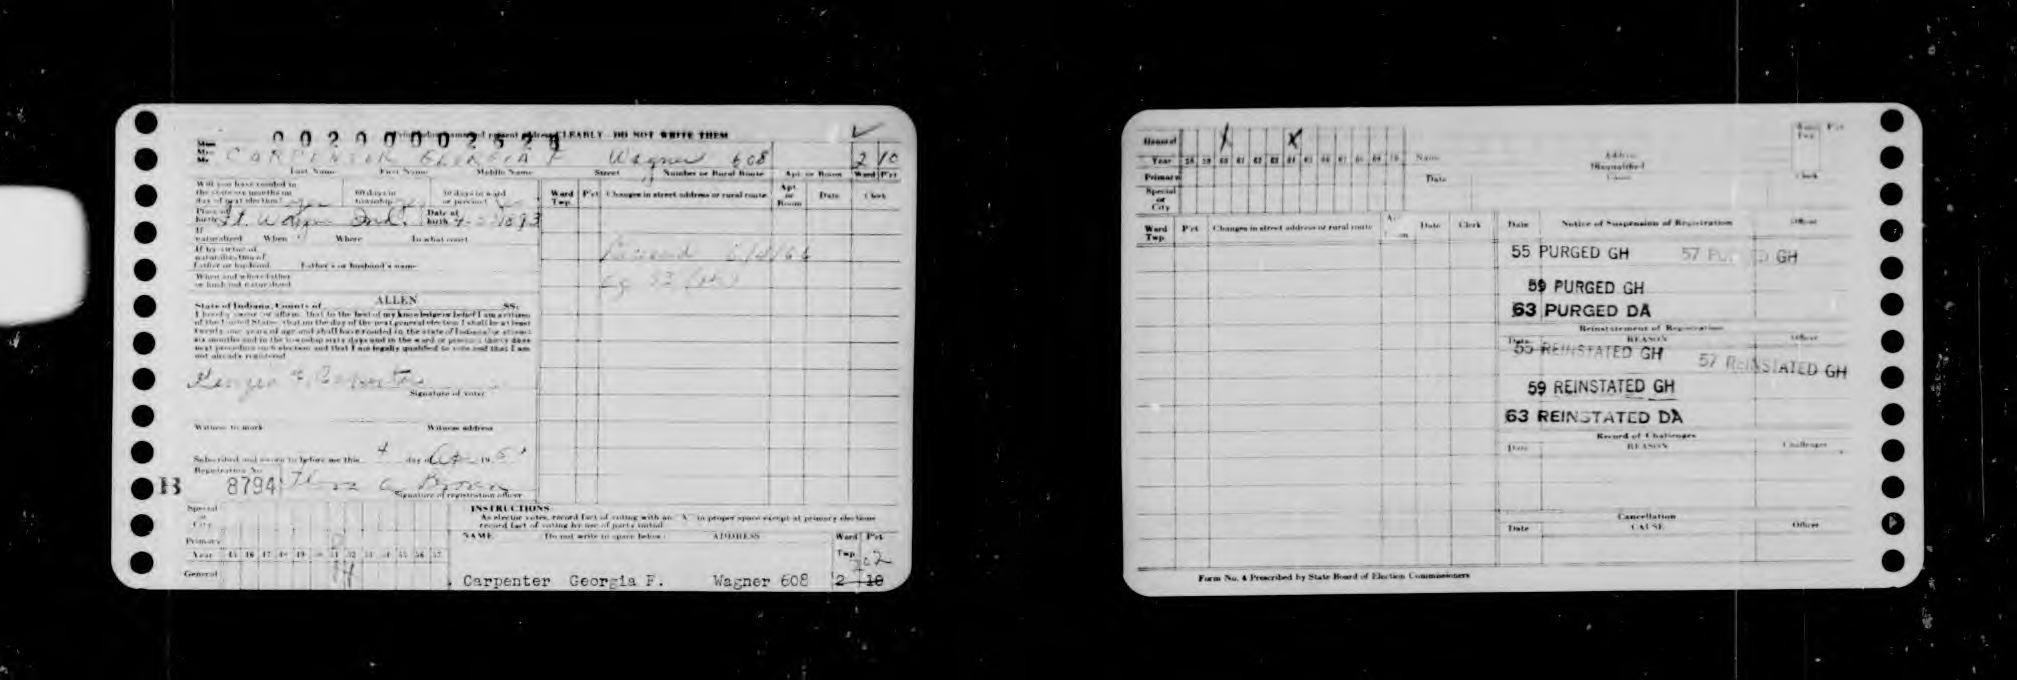 002000002528
CLEARLY DO NOT WRITE THEM
Mrs.
CARPENTER GEORGIA F Wagner 608 2 10
Last Name First Name Middle Name Street Number or Rural Route Apt. or Room Ward P'ct
Will you have resided in
the state six months on
day of next election? yes
60 days in
township
30 days in ward
or precinct
Place of
birth Ft. Wayne Ind. Date of
birth 1893
If
naturalized When Where In what court
If by virtue of
naturalization of
father or husband Father's or husband's name
When and where father
or husband naturalized
Ward
Twp. P'ct Changes in street address or rural route Apt.
or
Room Date Clerk
State of Indiana, County of ALLEN SS:
I hereby swear or affirm, that to the best of my knowledge or belief I am a citizen
of the United States, that on the day of the next general election I shall be at least
twenty-one years of age and shall have resided in the state of Indiana for at least
six months and in the township sixty days and in the ward or precinct thirty days
next preceding such election and that I am legally qualified to vote and that I am
not already registered
Georgia F. Carpenter
Signature of voter
Witness to mark Witness address
Subscribed and sworn to before me this 4 day of 19
Registration No.
B 8794 Brown
Signature of registration officer
Special
or
City
Primary
Year 45 46 47 48 49 50 51 52 53 54 55 56 57
General
INSTRUCTIONS
As elector votes, record fact of voting with an "X" in proper space except at primary elections
record fact of voting by use of party initial
NAME Do not write in space below ADDRESS Ward P'ct
Twp
202
Carpenter Georgia F. Wagner 608 2 10
General
Year 58 59 60 61 62 63 64 65 66 67 68 69 70 Name Address
Primary Disqualified
Special
or
City Date Cause Clerk
Ward
Twp. P'ct Changes in street address or rural route Date Clerk
Date Notice of Suspension of Registration Officer
55 PURGED GH 57 PURGED GH
59 PURGED GH
63 PURGED DA
Reinstatement of Registration
Date REASON Officer
55 REINSTATED GH 57 REINSTATED GH
59 REINSTATED GH
63 REINSTATED DA
Record of Challenges
Date REASON Challenger
Cancellation
Date CAUSE Officer
Form No. 4 Prescribed by State Board of Election Commissioners